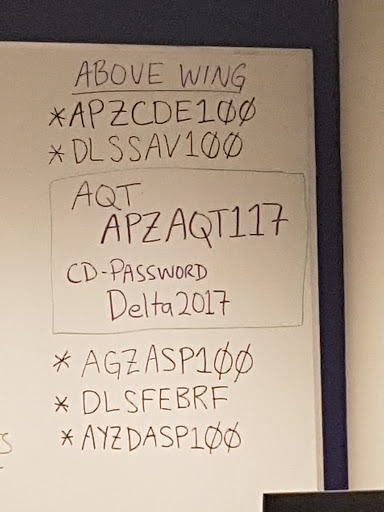 ABOVE WING
*APZCDE100
*DLSSAV100
AQT
APZAQT117
CD-PASSWORD
Delta2017
* AGZASP100
* DLSFEBRF
* AYZDASP100